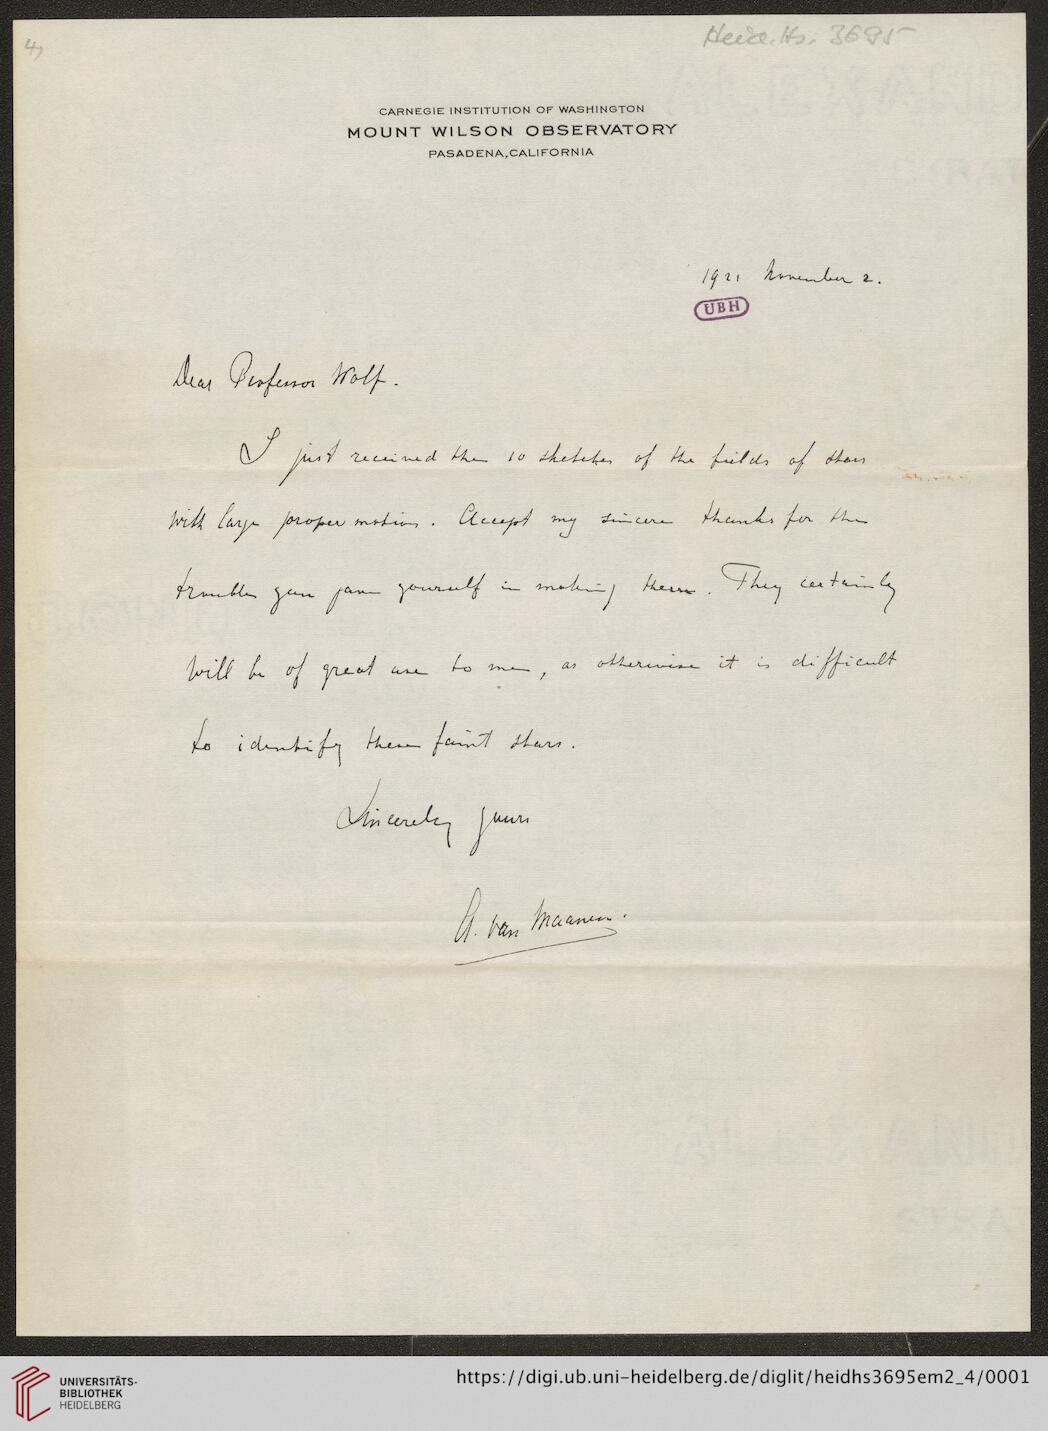 4,
Heid. Hs. 3695
CARNEGIE INSTITUTION OF WASHINGTON
MOUNT WILSON OBSERVATORY
PASADENA, CALIFORNIA
1921 November 2.
UBH
Dear Professor Wolf.
I just received the 10 sketches of the fields of stars
with large proper motion. Accept my sincere thanks for the
trouble you gave yourself in making them. They certainly
will be of great use to me, as otherwise it is difficult
to identify these faint stars.
Sincerely yours
A. van Maanen.
UNIVERSITÄTS-
BIBLIOTHEK
HEIDELBERG
https://digi.ub.uni-heidelberg.de/diglit/heidhs3695em2_4/0001